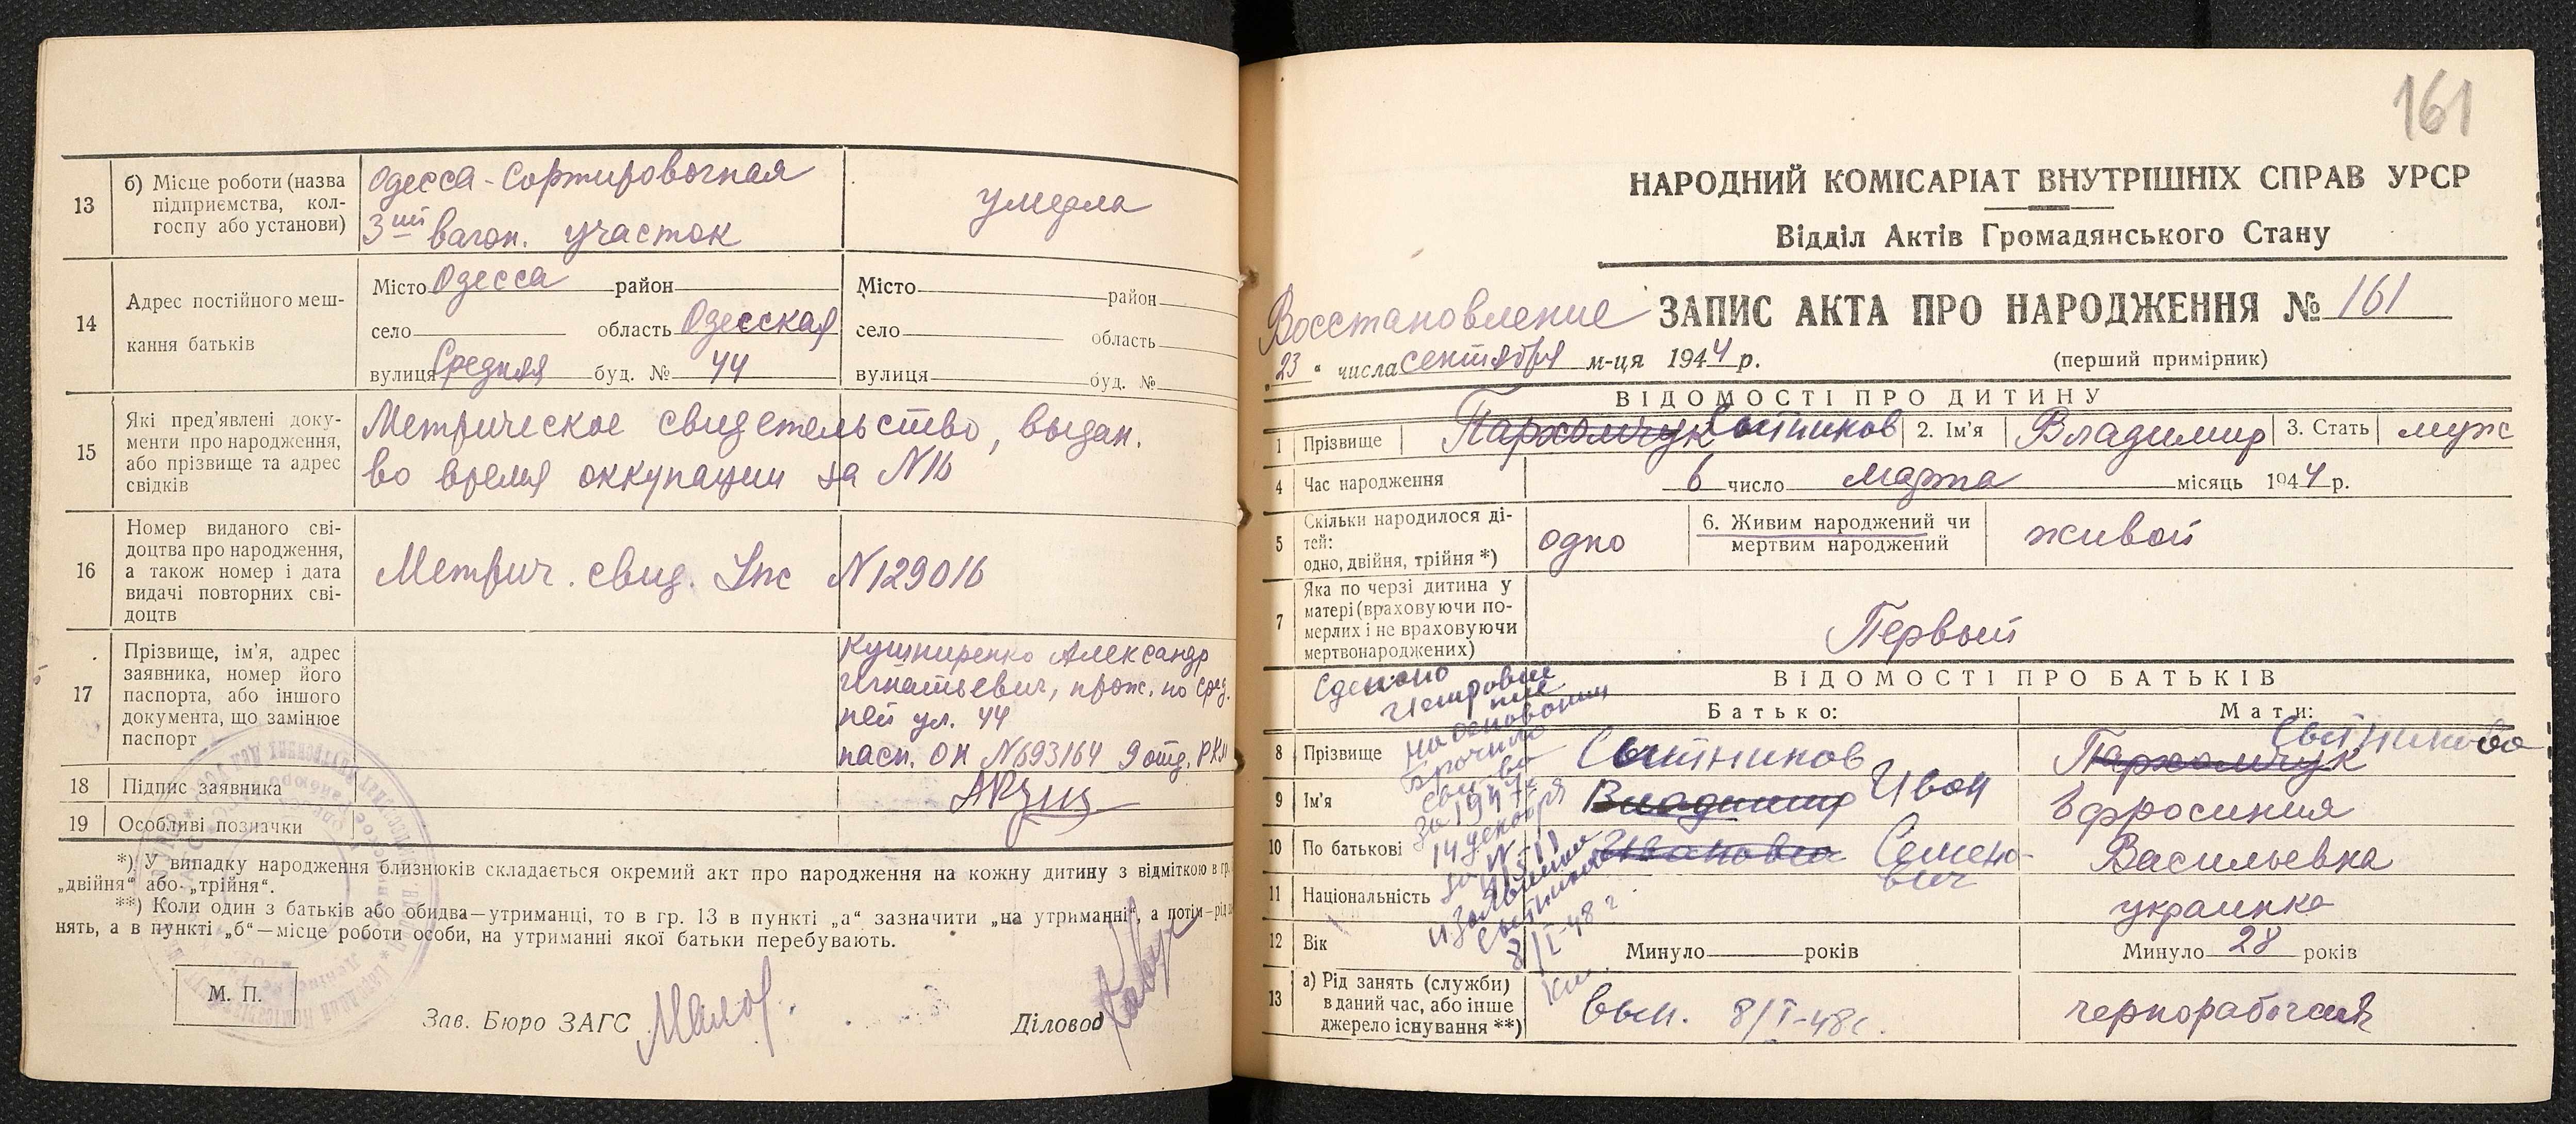 13
б) Місце роботи (назва
підприємства, кол-
госпу або установи)
Одесса-Сортировочная
3ий вагон. участок
умерла
14
Адрес постійного меш-
кання батьків
Місто Одесса район
село область Одесская
вулиця Средняя буд. № 44
Місто район
село область
вулиця буд. №
15
Які пред'явлені доку-
менти про народження,
або прізвище та адрес
свідків
Метрическое свидетельство, выдан.
во время оккупации за N16
16
Номер виданого сві-
доцтва про народження,
а також номер і дата
видачі повторних сві-
доцтв
Метрич. свид. N129016
17
Прізвище, ім'я, адрес
заявника, номер його
паспорта, або іншого
документа, що замінює
паспорт
Кушниренко Александр
Игнатьевич, прож. по Сред.
ней ул. 44
пасп. ОН N693164 9 отд. РКМ
18 Підпис заявника
19 Особливі позначки
*) У випадку народження близнюків складається окремий акт про народження на кожну дитину з відміткою в гр.
„двійня" або „трійня".
**) Коли один з батьків або обидва—утриманці, то в гр. 13 в пункті „а" зазначити „на утриманні", а потім—рід за-
нять, а в пункті „б"—місце роботи особи, на утриманні якої батьки перебувають.
М. П.
Зав. Бюро ЗАГС
Діловод
161
НАРОДНИЙ КОМІСАРІАТ ВНУТРІШНІХ СПРАВ УРСР
Відділ Актів Громадянського Стану
Восстановление ЗАПИС АКТА ПРО НАРОДЖЕННЯ № 161
„23" числа сентября м-ця 1944 р. (перший примірник)
ВІДОМОСТІ ПРО ДИТИНУ
1 Прізвище Пархомчук Сытников 2. Ім'я Владимир 3. Стать муж
4 Час народження 6 число марта місяць 1944 р.
5
Скільки народилося ді-
тей:
одно, двійня, трійня *)
одно
6. Живим народжений чи
мертвим народжений
живой
7
Яка по черзі дитина у
матері (враховуючи по-
мерлих і не враховуючи
мертвонароджених)
Первый
ВІДОМОСТІ ПРО БАТЬКІВ
Батько: Мати:
8 Прізвище Сытников Пархомчук Сытникова
9 Ім'я Владимир Иван Ефросиния
10 По батькові Иванович Семено-
вич
Васильевна
11 Національність украинка
12 Вік Минуло років Минуло 28 років
13
а) Рід занять (службы)
в даний час, або інше
джерело існування **)
вып. 8/I-48г.
чернорабочая
Сделано
исправле
ние
на основании
брачного
св-ва
за 1947г.
14 декабря
за N
и заявления
Сытникова
8/I-48 г.